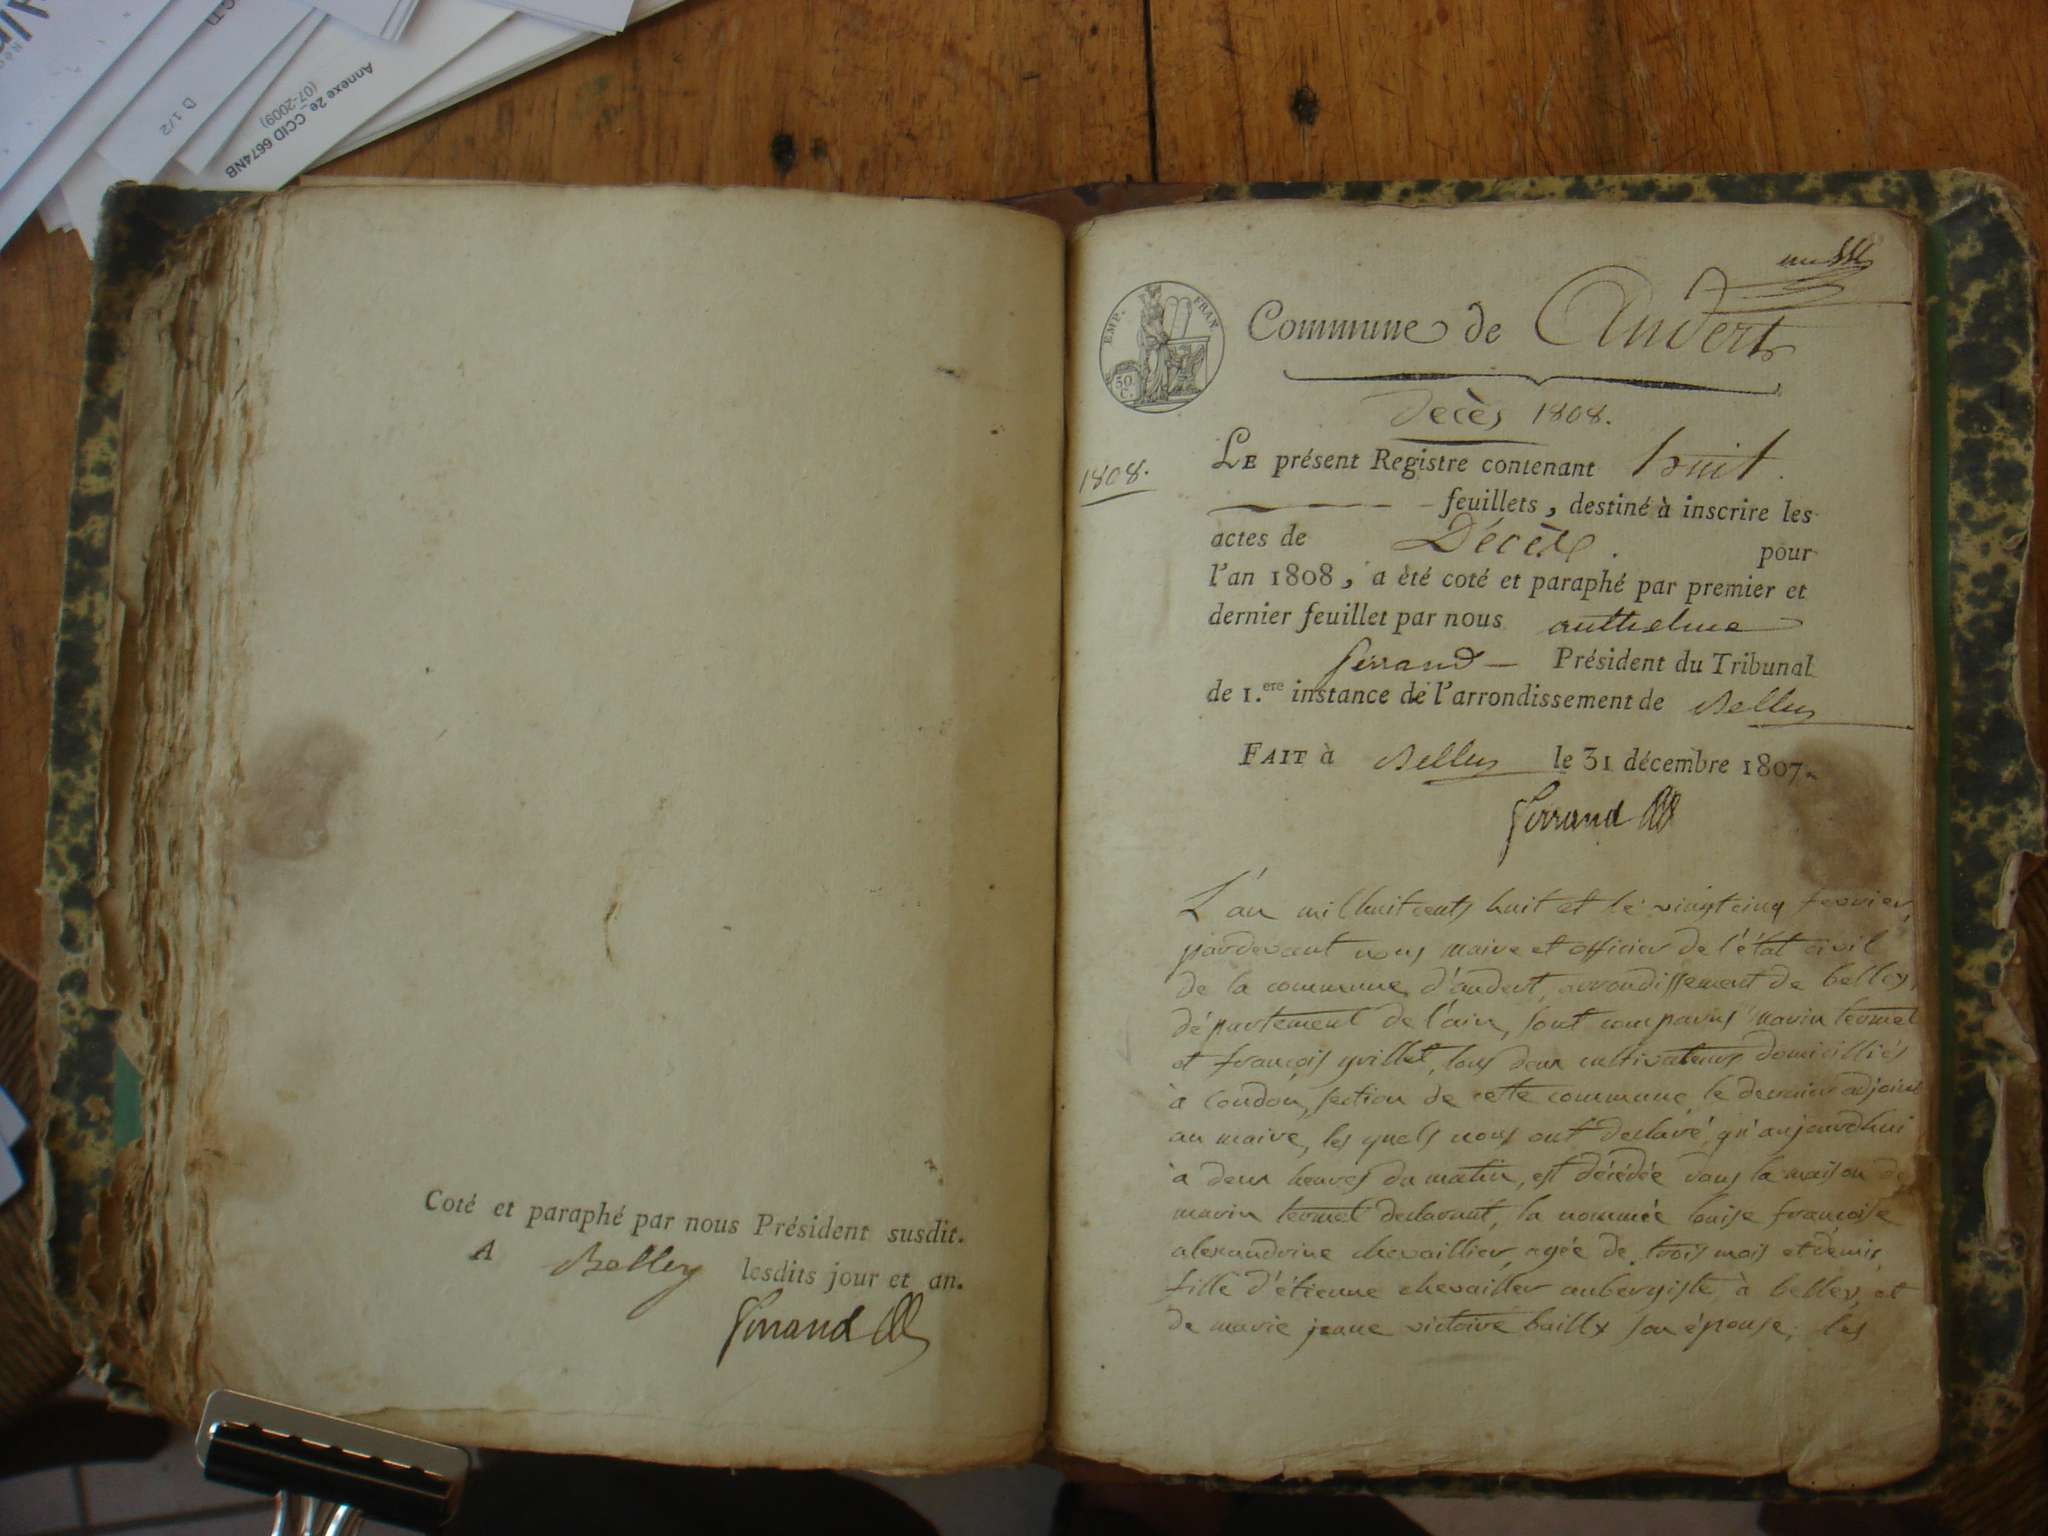 D 1/2
Annexe 2e_CCID 6674NB
(07-2009)
Coté et paraphé par nous Président susdit.
A Belley lesdits jour et an.
Ferrand
EMP. FRAN
50
C.
Commune de Andert
Decès 1808.
1808.
LE présent Registre contenant huit
feuillets, destiné à inscrire les
actes de Décès. pour
l'an 1808, a été coté et paraphé par premier et
dernier feuillet par nous anthelme
ferrand — Président du Tribunal
de 1.ere instance de l'arrondissement de Belley
FAIT à Belley le 31 décembre 1807.
Ferrand
L'an mil huit cents huit et le vingt cinq fevrier,
pardevant nous maire et officier de l'état civil
de la commune d'andert, arrondissement de belley,
département de l'ain, sont comparus marin termet
et françois yvillet, tous deux cultivateurs domicilliés
à Condon, section de cette commune, le dernier adjoint
au maire, les quels nous ont declaré, qu'aujourdhui
à deux heures du matin, est décédée dans la maison de
marin termet declarant, la nommée louise françoise
alexandrine chevaillier, agée de trois mois et demis,
fille d'étienne chevaillier aubergiste, à belley, et
de marie jeanne victoire bailly son épouse; les